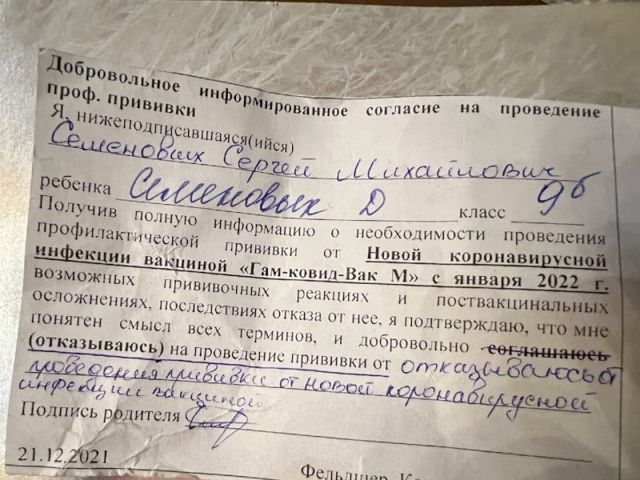 Добровольное информированное согласие на проведение
проф. прививки
Я, нижеподписавшаяся(ийся)
Семеновых Сергей Михайлович
ребенка Семеновых Д класс 9б
Получив полную информацию о необходимости проведения
профилактической прививки от Новой коронавирусной
инфекции вакциной «Гам-ковид-Вак М» с января 2022 г.
возможных прививочных реакциях и поствакцинальных
осложнениях, последствиях отказа от нее, я подтверждаю, что мне
понятен смысл всех терминов, и добровольно соглашаюсь
(отказываюсь) на проведение прививки от отказываюсь от
проведения прививки от новой коронавирусной
инфекции вакциной
Подпись родителя
21.12.2021
Фельдшер